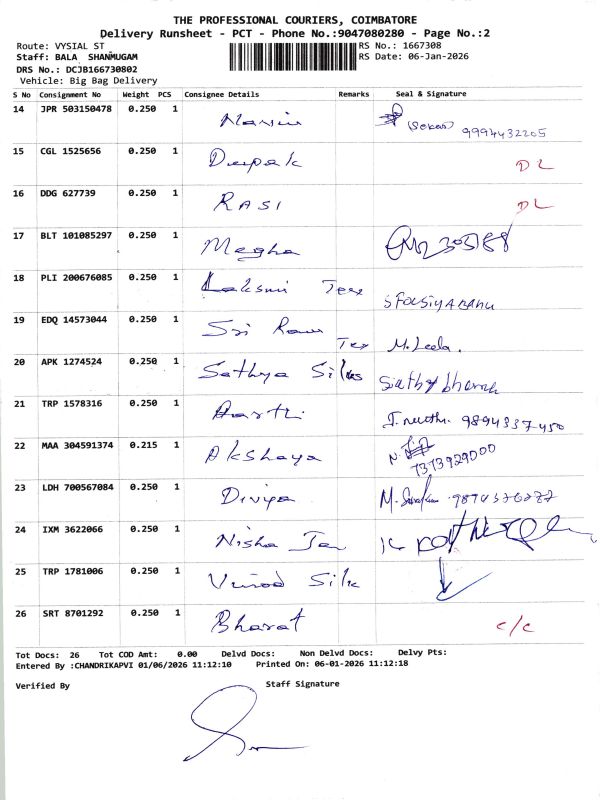 THE PROFESSIONAL COURIERS, COIMBATORE
Delivery Runsheet - PCT - Phone No.:9047080280 - Page No.:2
Route: VYSIAL ST RS No.: 1667308
Staff: BALA SHANMUGAM RS Date: 06-Jan-2026
DRS No.: DCJB166730802
Vehicle: Big Bag Delivery
S No Consignment No Weight PCS Consignee Details Remarks Seal & Signature
14 JPR 503150478 0.250 1 9994432205
15 CGL 1525656 0.250 1 Deepak DL
16 DDG 627739 0.250 1 RASI DL
17 BLT 101085297 0.250 1 Megha
18 PLI 200676085 0.250 1 Laksmi Tex
19 EDQ 14573044 0.250 1 Sri Ram Tex M. Leela.
20 APK 1274524 0.250 1 Sathya Silks
21 TRP 1578316 0.250 1 Aarthi 9894337450
22 MAA 304591374 0.215 1 Akshaya 7373929000
23 LDH 700567084 0.250 1 Diviya
24 IXM 3622066 0.250 1 Nisha
25 TRP 1781006 0.250 1 Vinod Silk
26 SRT 8701292 0.250 1 Bharat c/c
Tot Docs: 26 Tot COD Amt: 0.00 Delvd Docs: Non Delvd Docs: Delvy Pts:
Entered By :CHANDRIKAPVI 01/06/2026 11:12:10 Printed On: 06-01-2026 11:12:18
Verified By Staff Signature